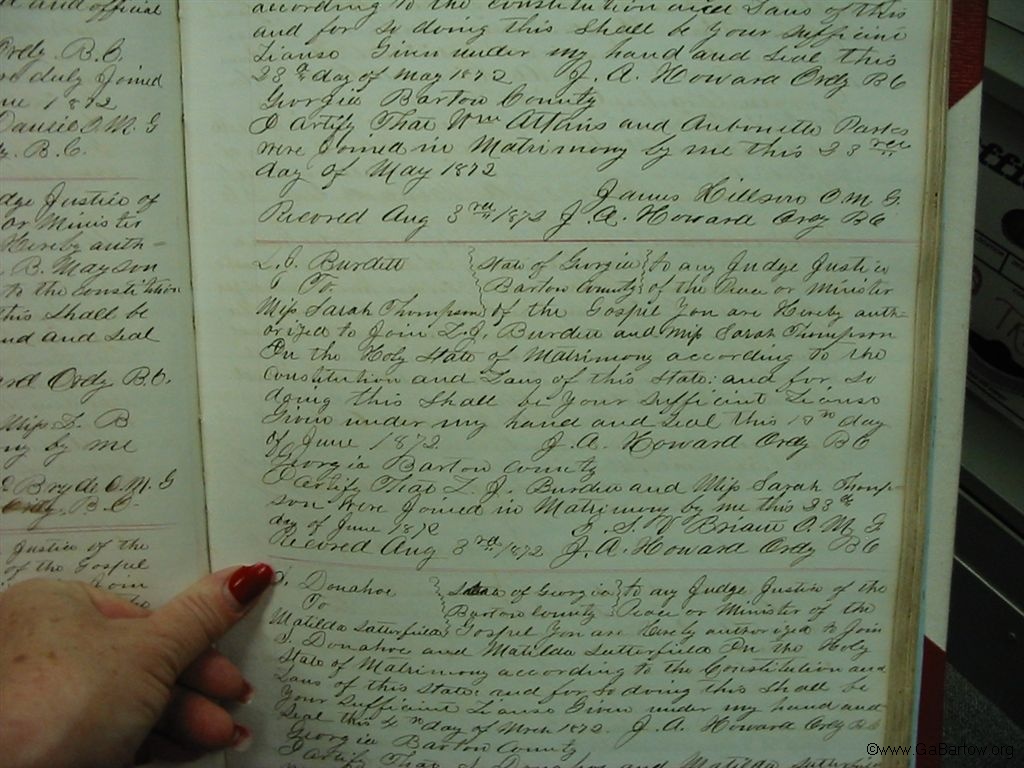 d and official
Ordy. B.C.
re duly Joined
ne 1872
Daniel O. M. G
B.C.
dge Justice of
or Minister
Hereby auth=
B. Mayson
to the Constitution
this shall be
and and Seal
ard Ordy B.C.
Miss L. B
ny by me
Bryde O. M. G
Ordy. B.C.
Justice of the
of the Gospel
Join
according to the Constitution and Laws of this
and for so doing this shall be your Sufficient
License Given under my hand and Seal this
23rd day of May 1872 J. A. Howard Ordy B C
Georgia Bartow County
I Certify That Wm Atkins and Antonette Parks
were Joined in Matrimony by me this 23rd
day of May 1872
James Hillson O M G
Recored Aug 3rd 1872 J. A. Howard Ordy B C
L. J. Burdett State of Georgia to any Judge Justice
To Bartow County of the Peace or Minister
Miss Sarah Thompson of the Gospel You are Hereby auth=
orized to Join L. J. Burdett and Miss Sarah Thompson
In the Holy State of Matrimony according to the
Constitution and Laws of this State: and for so
doing this shall be Your Sufficient License
Given under my hand and Seal this 18th day
of June 1872 J. A. Howard Ordy B C
Georgia Bartow County
I Certify That L. J. Burdett and Miss Sarah Thomp-
son were Joined in Matrimony by me this 23rd
day of June 1872 O. M. G
Recored Aug 3rd 1872 J. A. Howard Ordy B C
Donahoe State of Georgia to any Judge Justice of the
To Bartow County Peace or Minister of the
Matilda Satterfield Gospel You are Hereby authorized to Join
Donahoe and Matilda Satterfield In the Holy
State of Matrimony according to the Constitution and
Laws of this State: and for so doing this shall be
Your Sufficient License Given under my hand and
Seal this day of 1872. J. A. Howard Ordy B C
Georgia Bartow County
I Certify That Donahoe and Matilda Satterfield
©www.GaBartow.org